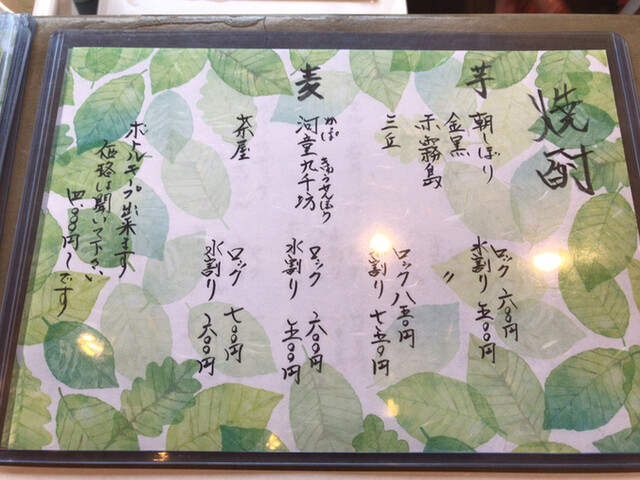 焼酎
芋
朝しぼり ロック 六〇〇円
水割り 五〇〇円
金黒 〃
赤霧島
三丘 ロック 八五〇円
水割り 七五〇円
麦
河童九千坊 ロック 六〇〇円
かっぱ きゅうせんぼう
水割り 五〇〇円
茶屋 ロック 七〇〇円
水割り 六〇〇円
ボトルキープ出来ます
価格は聞いて下さい
〇〇円〜です